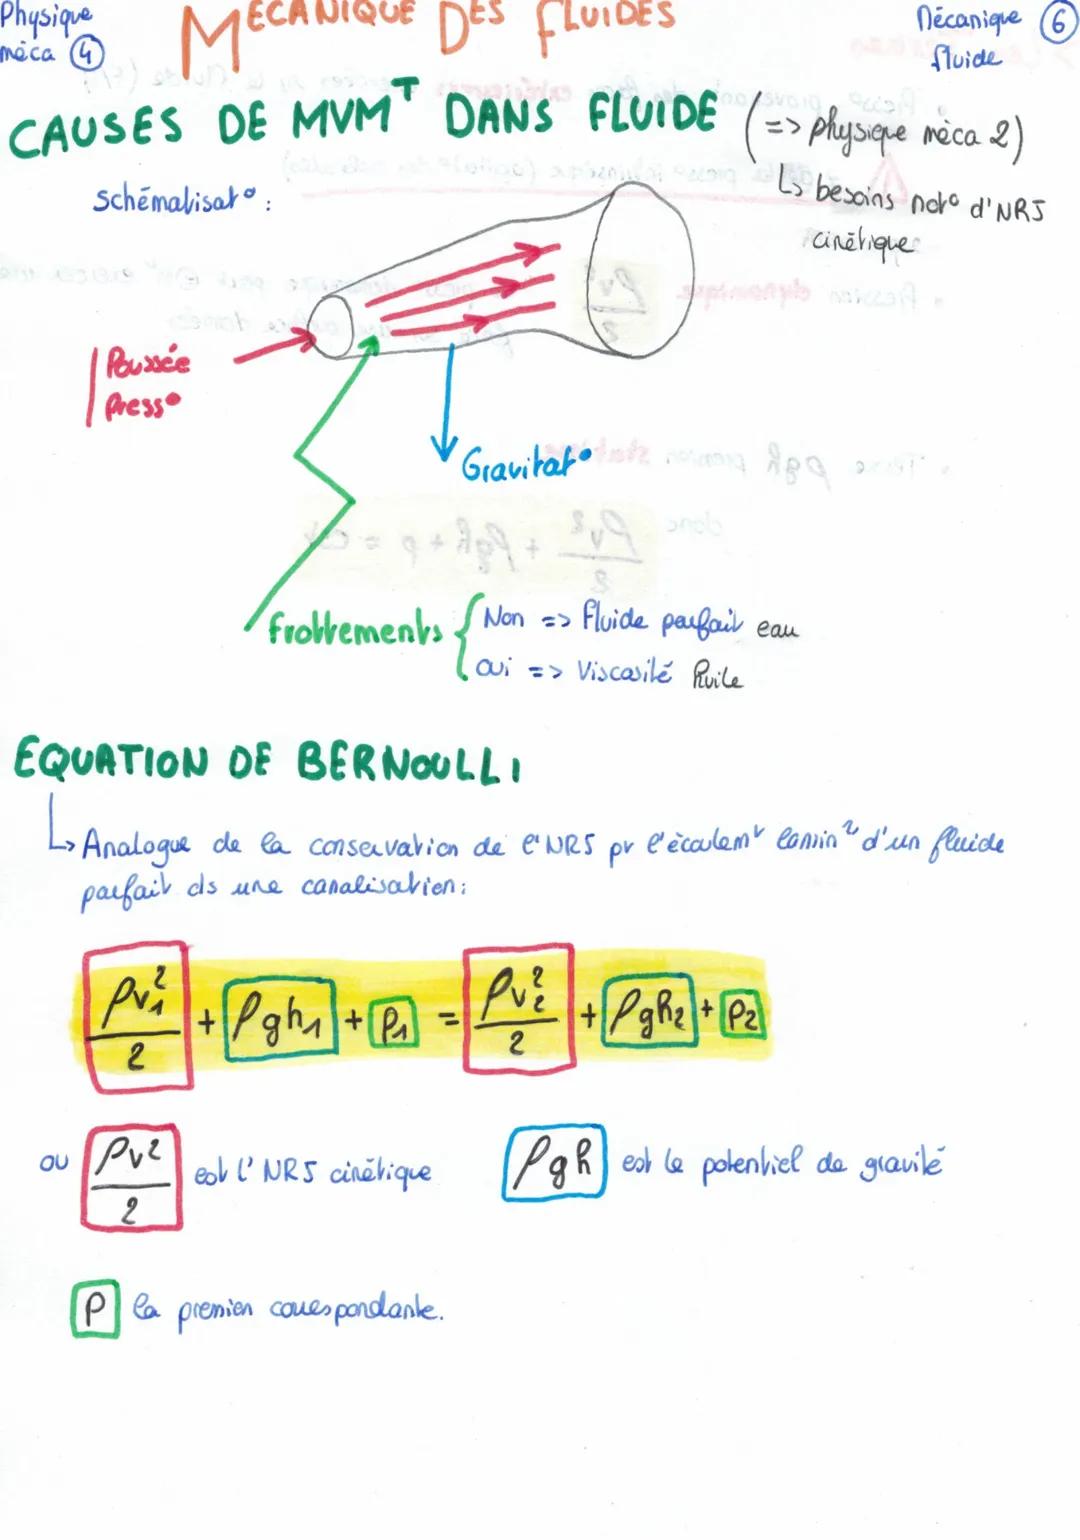 Physique
méca ④
MECANIQUE DES FLUIDES
Mécanique ⑥
fluide
CAUSES DE MVMᵀ DANS FLUIDE (=> physique méca 2)
↳ besoins not° d'NRJ
cinétique
Schématisat°:
Poussée
Press°
Gravitat°
Frottements { Non => Fluide parfait eau
oui => Viscosité huile
EQUATION DE BERNOULLI
↳ Analogue de la conservation de l'NRJ pr l'écoulemᵗ lamin² d'un fluide
parfait ds une canalisation:
ρv₁²/2 + ρgh₁ + p₁ = ρv₂²/2 + ρgh₂ + p₂
ou ρv²/2 est l'NRJ cinétique ρgh est le potentiel de gravité
P la pression correspondante.